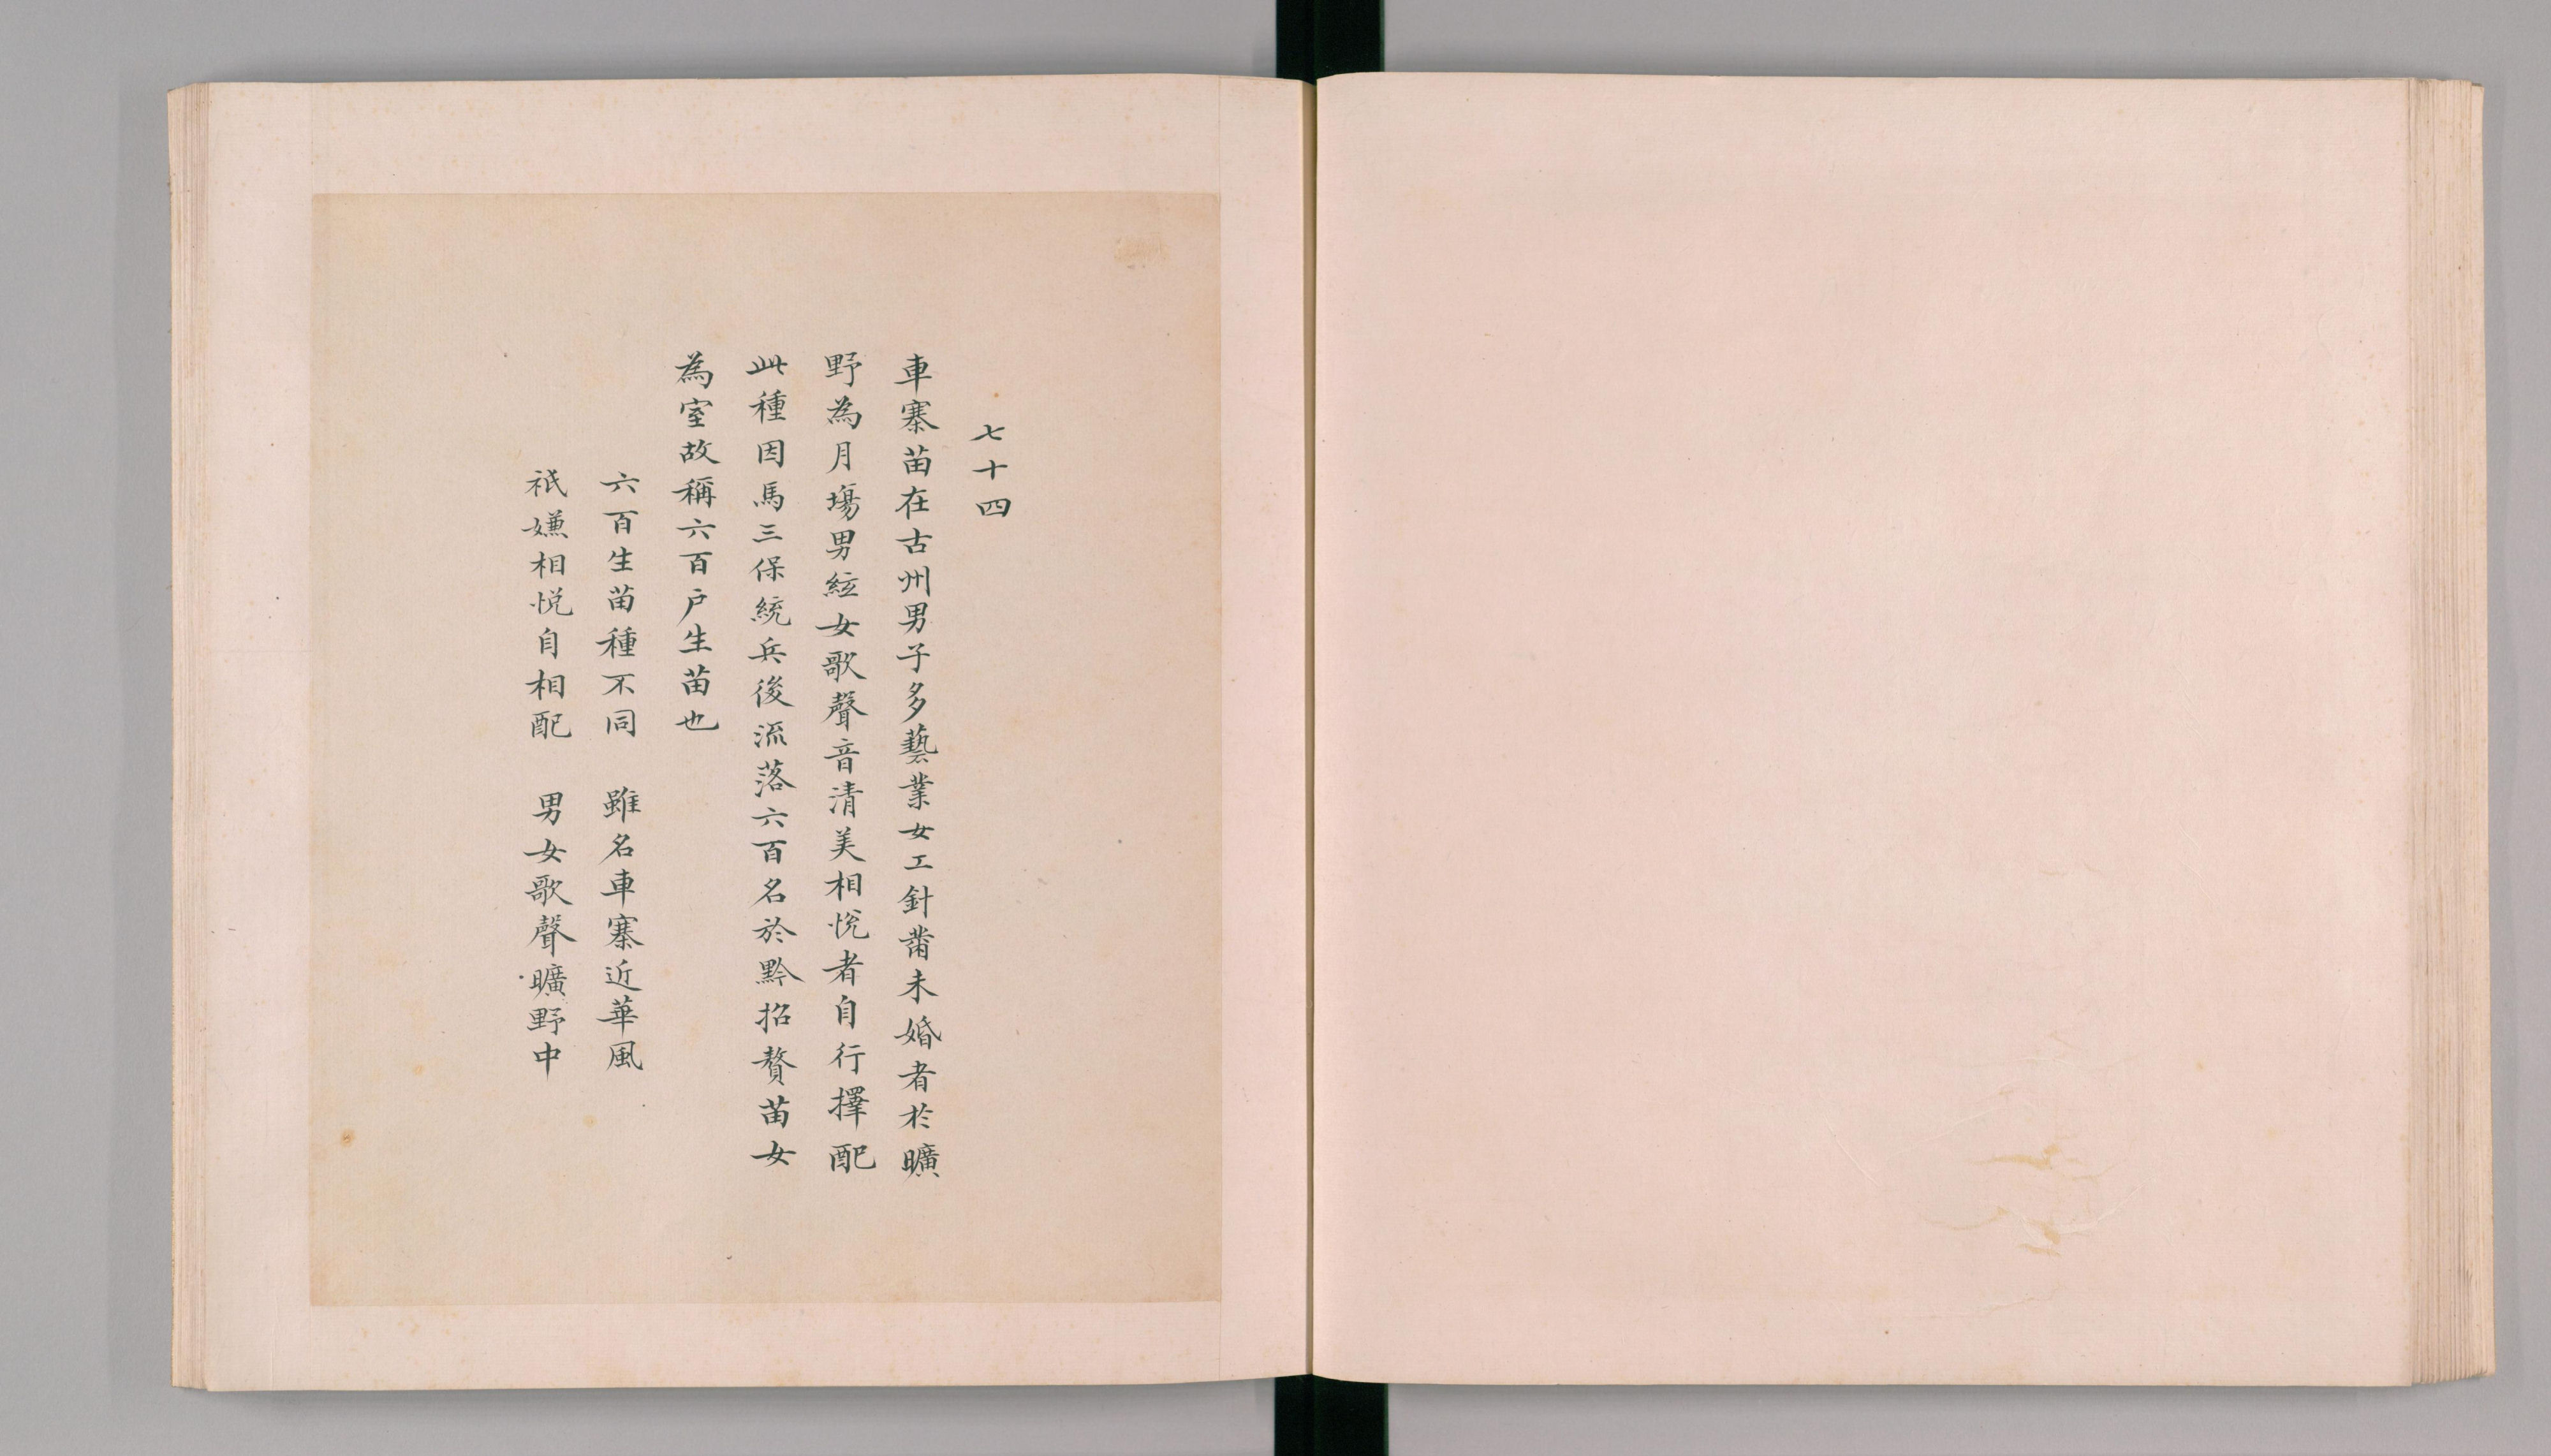 七十四
車寨苗在古州男子多藝業女工針黹未婚者於曠
野為月場男絃女歌聲音清美相悅者自行擇配
此種因馬三保統兵後流落六百名於黔招贅苗女
為室故稱六百戶生苗也
六百生苗種不同　雖名車寨近華風
祇嫌相悅自相配　男女歌聲曠野中